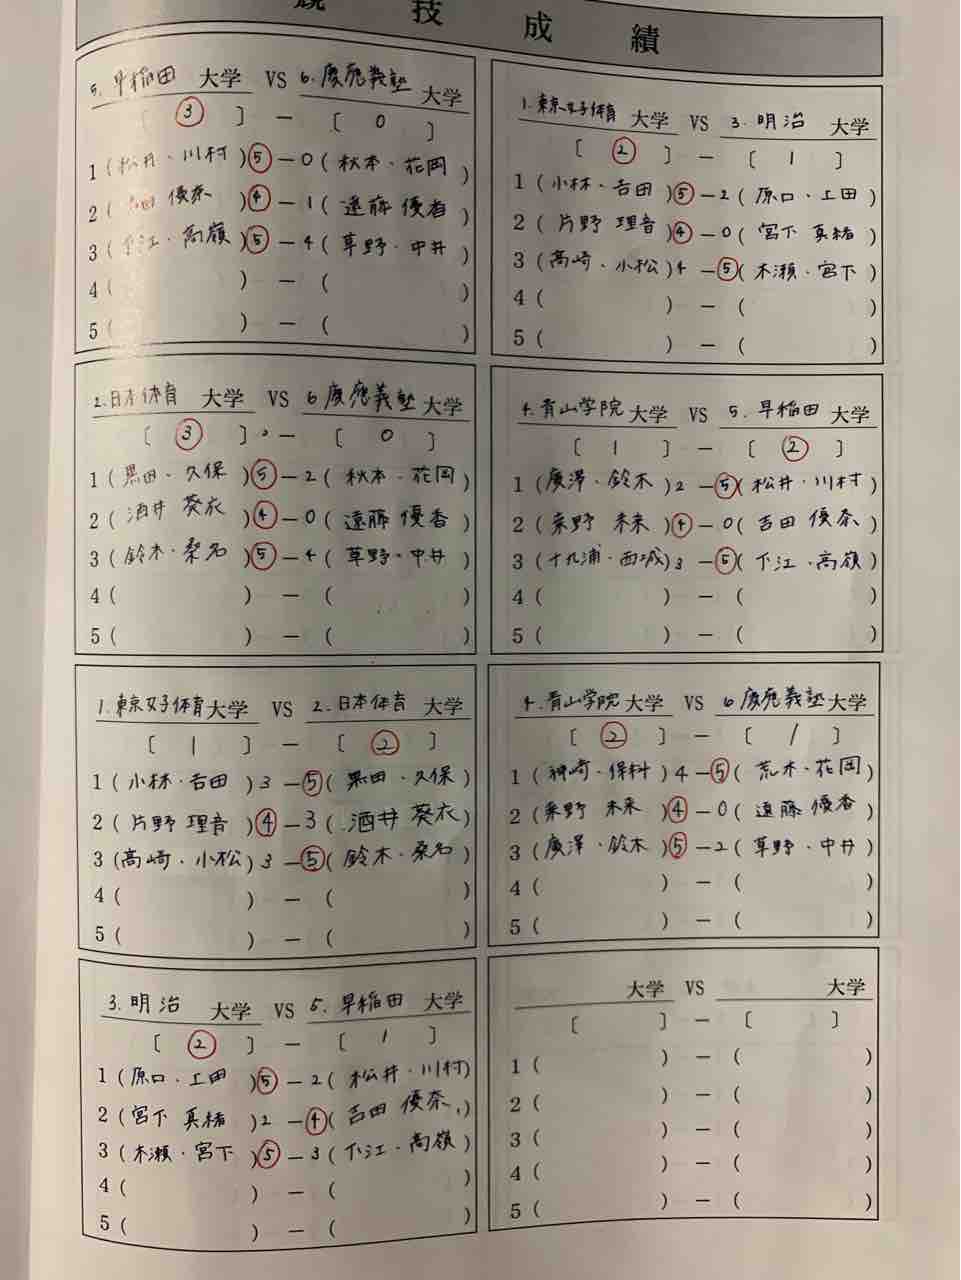 競技成績
5. 早稲田 大学 VS 6. 慶應義塾 大学
[ ③ ] － [ 0 ]
1 (松井・川村) ⑤－0 (秋本・花岡)
2 (吉田 優奈) ④－1 (遠藤 優香)
3 (下江・高嶺) ⑤－4 (草野・中井)
4 ( ) － ( )
5 ( ) － ( )
1. 東京女子体育 大学 VS 3. 明治 大学
[ ② ] － [ 1 ]
1 (小林・吉田) ⑤－2 (原口・上田)
2 (片野 理音) ④－0 (宮下 真緒)
3 (高崎・小松) 4－⑤ (木瀬・宮下)
4 ( ) － ( )
5 ( ) － ( )
2. 日本体育 大学 VS 6 慶應義塾 大学
[ ③ ] － [ 0 ]
1 (黒田・久保) ⑤－2 (秋本・花岡)
2 (酒井 葵衣) ④－0 (遠藤 優香)
3 (鈴木・桑名) ⑤－4 (草野・中井)
4 ( ) － ( )
5 ( ) － ( )
4. 青山学院 大学 VS 5. 早稲田 大学
[ 1 ] － [ ② ]
1 (廣澤・鈴木) 2－⑤ (松井・川村)
2 (粟野 未来) ④－0 (吉田 優奈)
3 (十九浦・西城) 3－⑤ (下江・高嶺)
4 ( ) － ( )
5 ( ) － ( )
1. 東京女子体育 大学 VS 2. 日本体育 大学
[ 1 ] － [ ② ]
1 (小林・吉田) 3－⑤ (黒田・久保)
2 (片野 理音) ④－3 (酒井 葵衣)
3 (高崎・小松) 3－⑤ (鈴木・桑名)
4 ( ) － ( )
5 ( ) － ( )
4. 青山学院 大学 VS 6 慶應義塾 大学
[ ② ] － [ 1 ]
1 (神崎・保科) 4－⑤ (荒木・花岡)
2 (粟野 未来) ④－0 (遠藤 優香)
3 (廣澤・鈴木) ⑤－2 (草野・中井)
4 ( ) － ( )
5 ( ) － ( )
3. 明治 大学 VS 5. 早稲田 大学
[ ② ] － [ 1 ]
1 (原口・上田) ⑤－2 (松井・川村)
2 (宮下 真緒) 2－④ (吉田 優奈)
3 (木瀬・宮下) ⑤－3 (下江・高嶺)
4 ( ) － ( )
5 ( ) － ( )
大学 VS 大学
[ ] － [ ]
1 ( ) － ( )
2 ( ) － ( )
3 ( ) － ( )
4 ( ) － ( )
5 ( ) － ( )